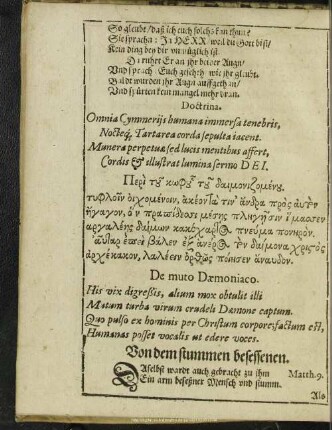 So glaubt / daß ich euch solchs kan thun:
Sie sprachn: Ja HERR weil du Gott bist /
Kein ding bey dir vnmüglich ist.
Da ruhrt Er an jhr beider Augn /
Vnd sprach: Euch gescheh wie jhr glaubt.
Bald wurden jhr Augn auffgethan /
Vnd spürten kein mangel mehr dran.
Doctrina.
Omnia Cymmerijs humana immersa tenebris,
Nocteq́; Tartarea corda sepulta iacent.
Munera perpetuæ sed lucis mentibus affert,
Cordis & illustrat lumina sermo DEI.
Περὶ τοῦ κωφοῦ τοῦ δαιμονιζομένου.
τυφλοῖν οἰχομένοιν, ἀκέοντά τιν' ἄνδρα πρὸς αὐτὸν
ἤγαγον, ὃν πραπίδεσσι μέσης πληγῇσιν ἵμασσεν
ἀργαλέης δαίμων κακόχαρτον πνεῦμα πονηρόν.
αὐτὰρ ἐπεὶ βάλεν ἐξ ἀνέρος τὸν δαίμονα χριστὸς
ἀρχέκακον, λαλέειν ὀρθῶς ποίησεν ἄναυδον.
De muto Dæmoniaco.
His vix digreßis, alium mox obtulit illi
Mutum turba virum crudeli Dæmone captum.
Quo pulso ex hominis per Christum corpore, factum est,
Humanas posset vocalis ut edere voces.
Von dem stummen besessenen.
DAselbst wardt auch gebracht zu jhm
Matth. 9.
Ein arm beseßner Mensch vnd stumm.
Als